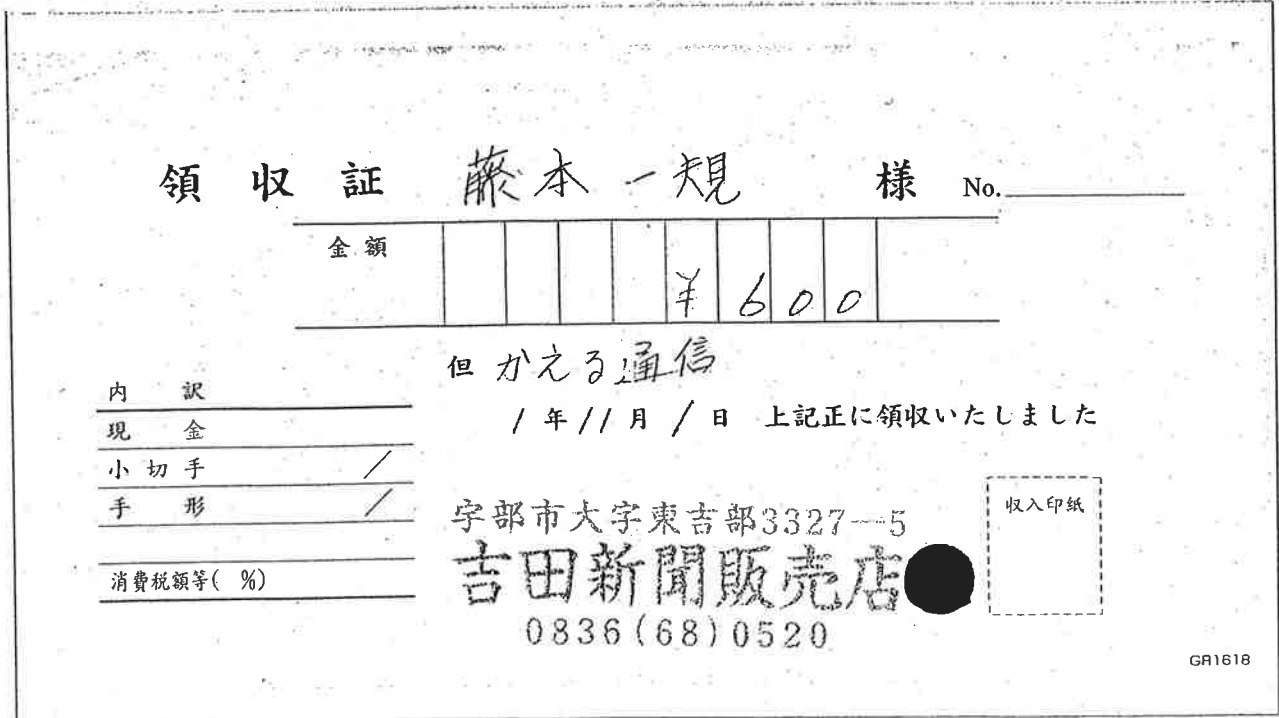 領収証 藤本一規 様 No.
金額 ¥600
但 かえる通信
1年11月1日 上記正に領収いたしました
内訳
現金
小切手 /
手形 /
消費税額等( %)
宇部市大字東吉部3327-5
吉田新聞販売店
0836(68)0520
収入印紙
GR1618